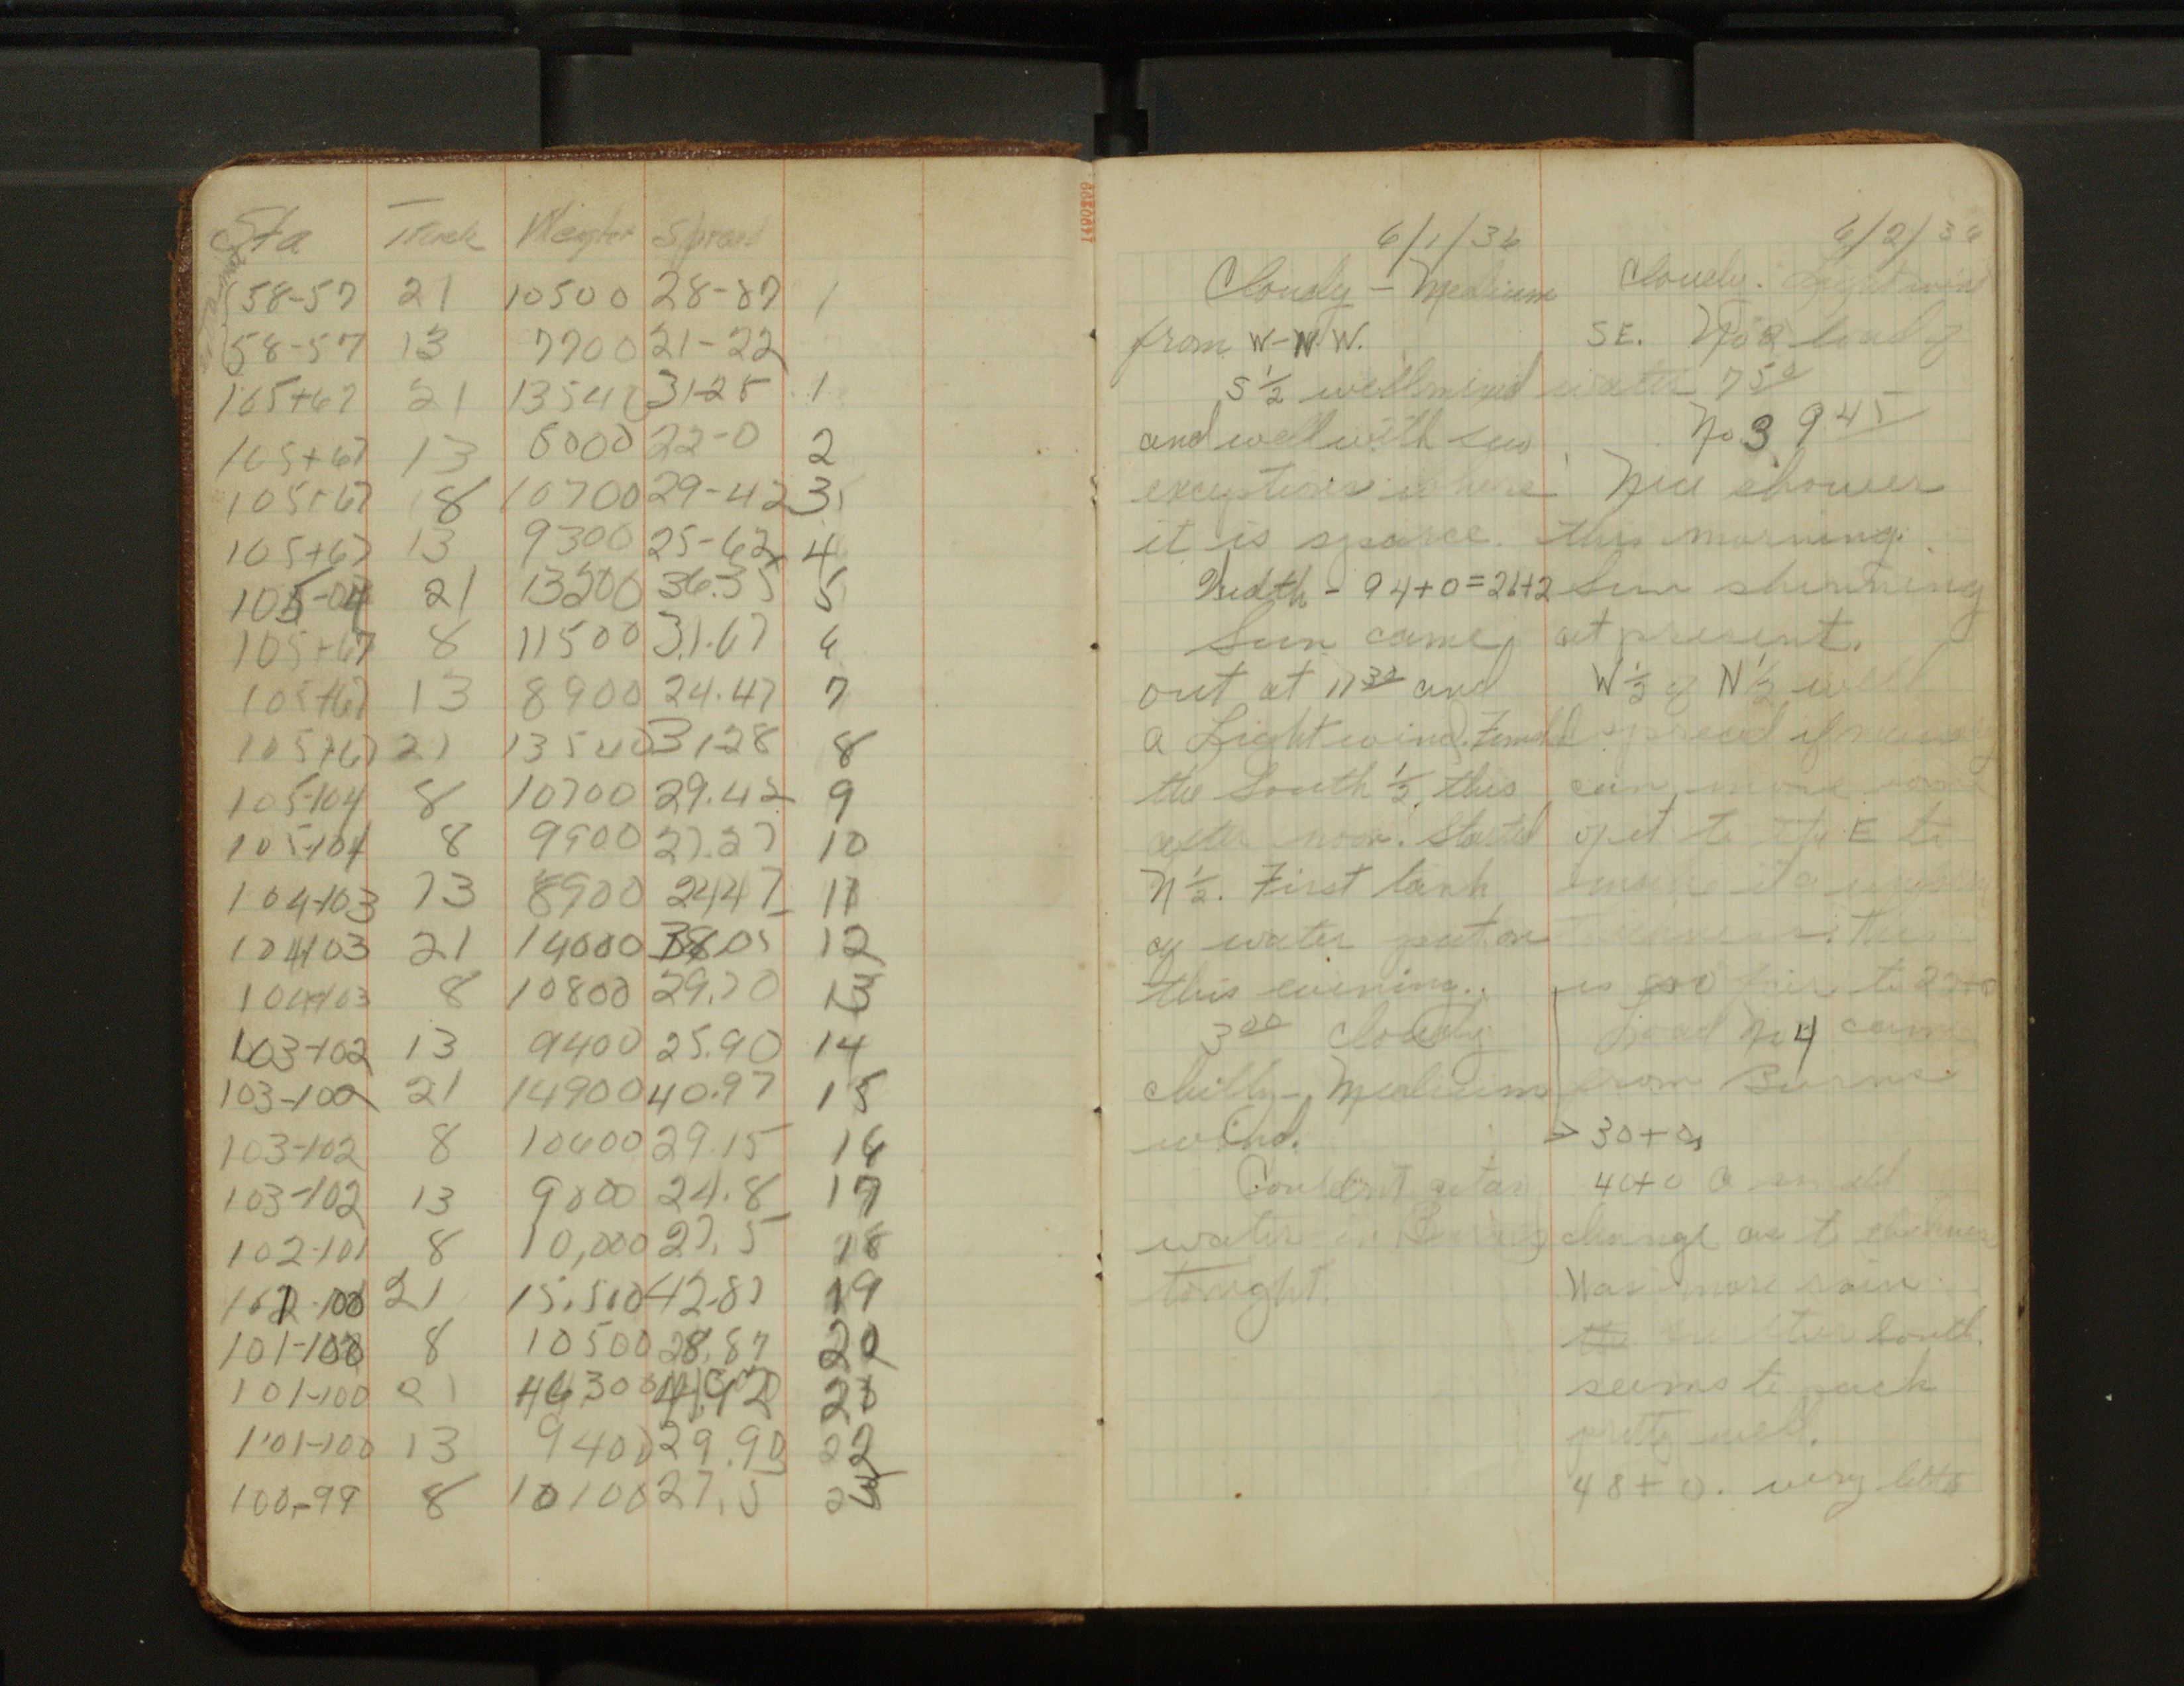 Sta Truck Weight Spread
58-57 21 10500 28-87 1
58-57 13 7700 21-22
105+67 21 1354 31-25 1
105+67 13 8000 22-0 2
105+67 18 10700 29-42 3
105+67 13 9300 25-62 4
105-04 21 13200 36.35 5
105+67 8 11500 31.67 6
105+67 13 8900 24.47 7
105+67 21 13540 31-28 8
105-104 8 10700 29.42 9
105-104 8 9900 27.27 10
104-103 13 8900 24.47 11
104-103 21 14000 38.05 12
104-103 8 10800 29.70 13
103-102 13 9400 25.90 14
103-102 21 14900 40.97 15
103-102 8 10600 29.15 16
103-102 13 9000 24.8 17
102-101 8 10,000 27.5 18
21 15.500 42.87 19
101-100 8 10500 28.87 20
101-100 21
101-100 13 9400 29.90 22
100-99 8 10100 27.5
140266
6/1/36
Cloudy - Medium
from W-N.W.
S 1/2 well mixed
and well with few
exceptions where
it is sparce.
Width - 94+0=26+2
Sun came
out at 11 30 and
a Light wind. Finishd
the South 1/2 this
after noon. Started
N 1/2. First tank
of water put on
this evening.
3 00 Cloudy
chilly - Medium
wind.
Couldn't get any
water in Burns
tonight.
6/2/36
Cloudy. Light wind
SE. No 2 load of
water 7 50
No 3 9 45
Nice shower
this morning.
Sun shinning
at present.
W 1/2 of N 1/2 well
spread if
can move some
of it to the E to
make it a
thickness. This
is fair to 22+0
Load No 4 came
from Burns
> 30+0
40+0 a small
change as to thickness
Has more rain
the South
seems to pack
pretty well.
48+0. very little